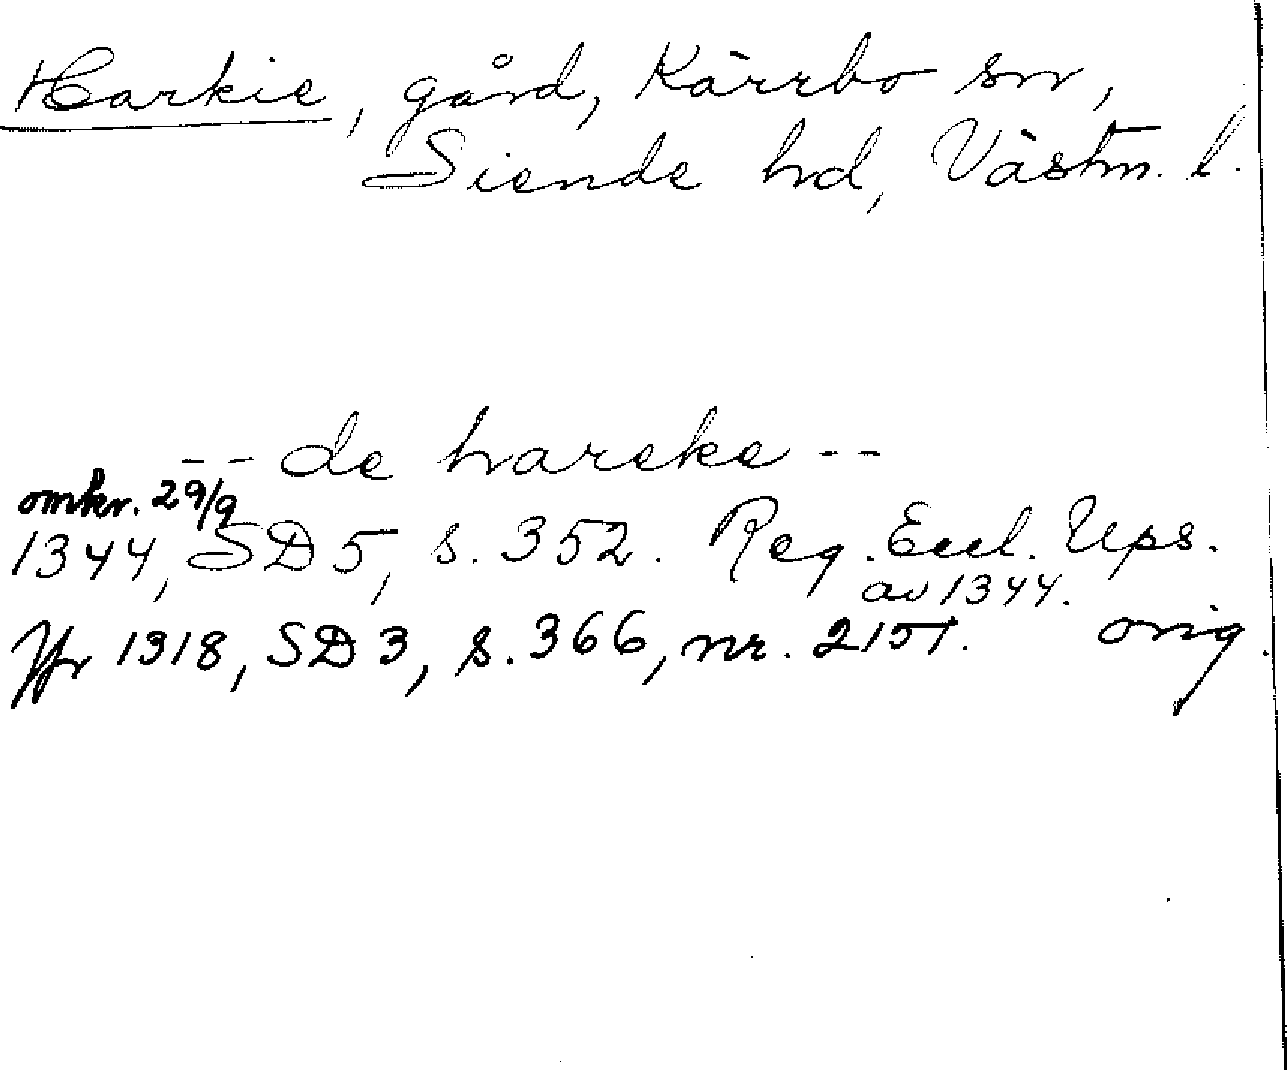 Harkie, gård, Kärrbo sn,
Siende hd, Västm. l.
-- de hareke --
omkr. 29/9
1344, SD 5, s. 352. Reg. Eccl. Ups.
av 1344.
Jfr 1318, SD 3, s. 366, nr. 2151. orig.